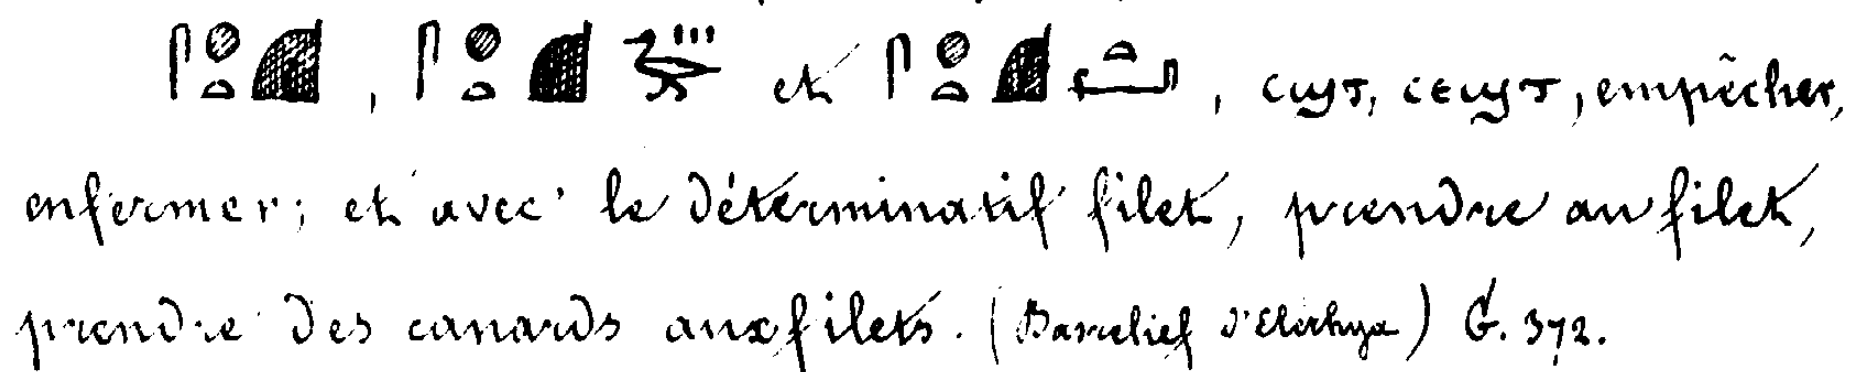 𓋴𓐍𓏏 , 𓋴𓐍𓏏 𓅭𓏥 et 𓋴𓐍𓏏 𓏏𓂝 , ⲥϣⲧ, ⲥⲉϣⲧ, empêcher,
enfermer; et avec le déterminatif filet, prendre au filet,
prendre des canards aux filets. (Basrelief d'Elethya) G. 372.